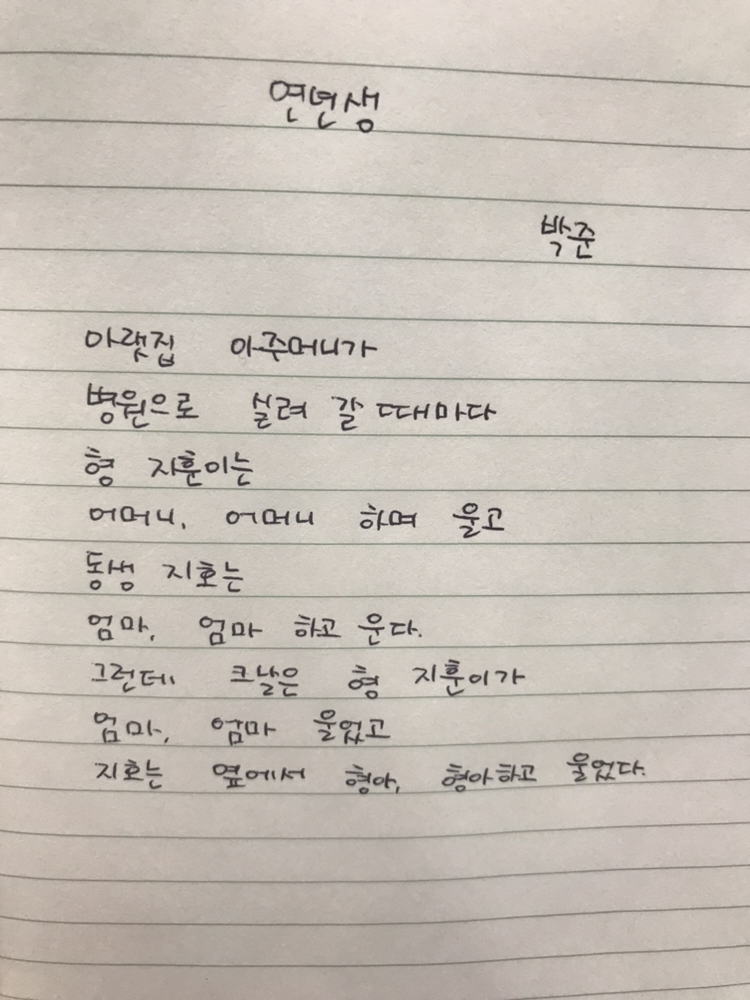 연년생
박준
아랫집 아주머니가
병원으로 실려 갈 때마다
형 지훈이는
어머니, 어머니 하며 울고
동생 지호는
엄마, 엄마 하고 운다.
그런데 그날은 형 지훈이가
엄마, 엄마 울었고
지호는 옆에서 형아, 형아하고 울었다.